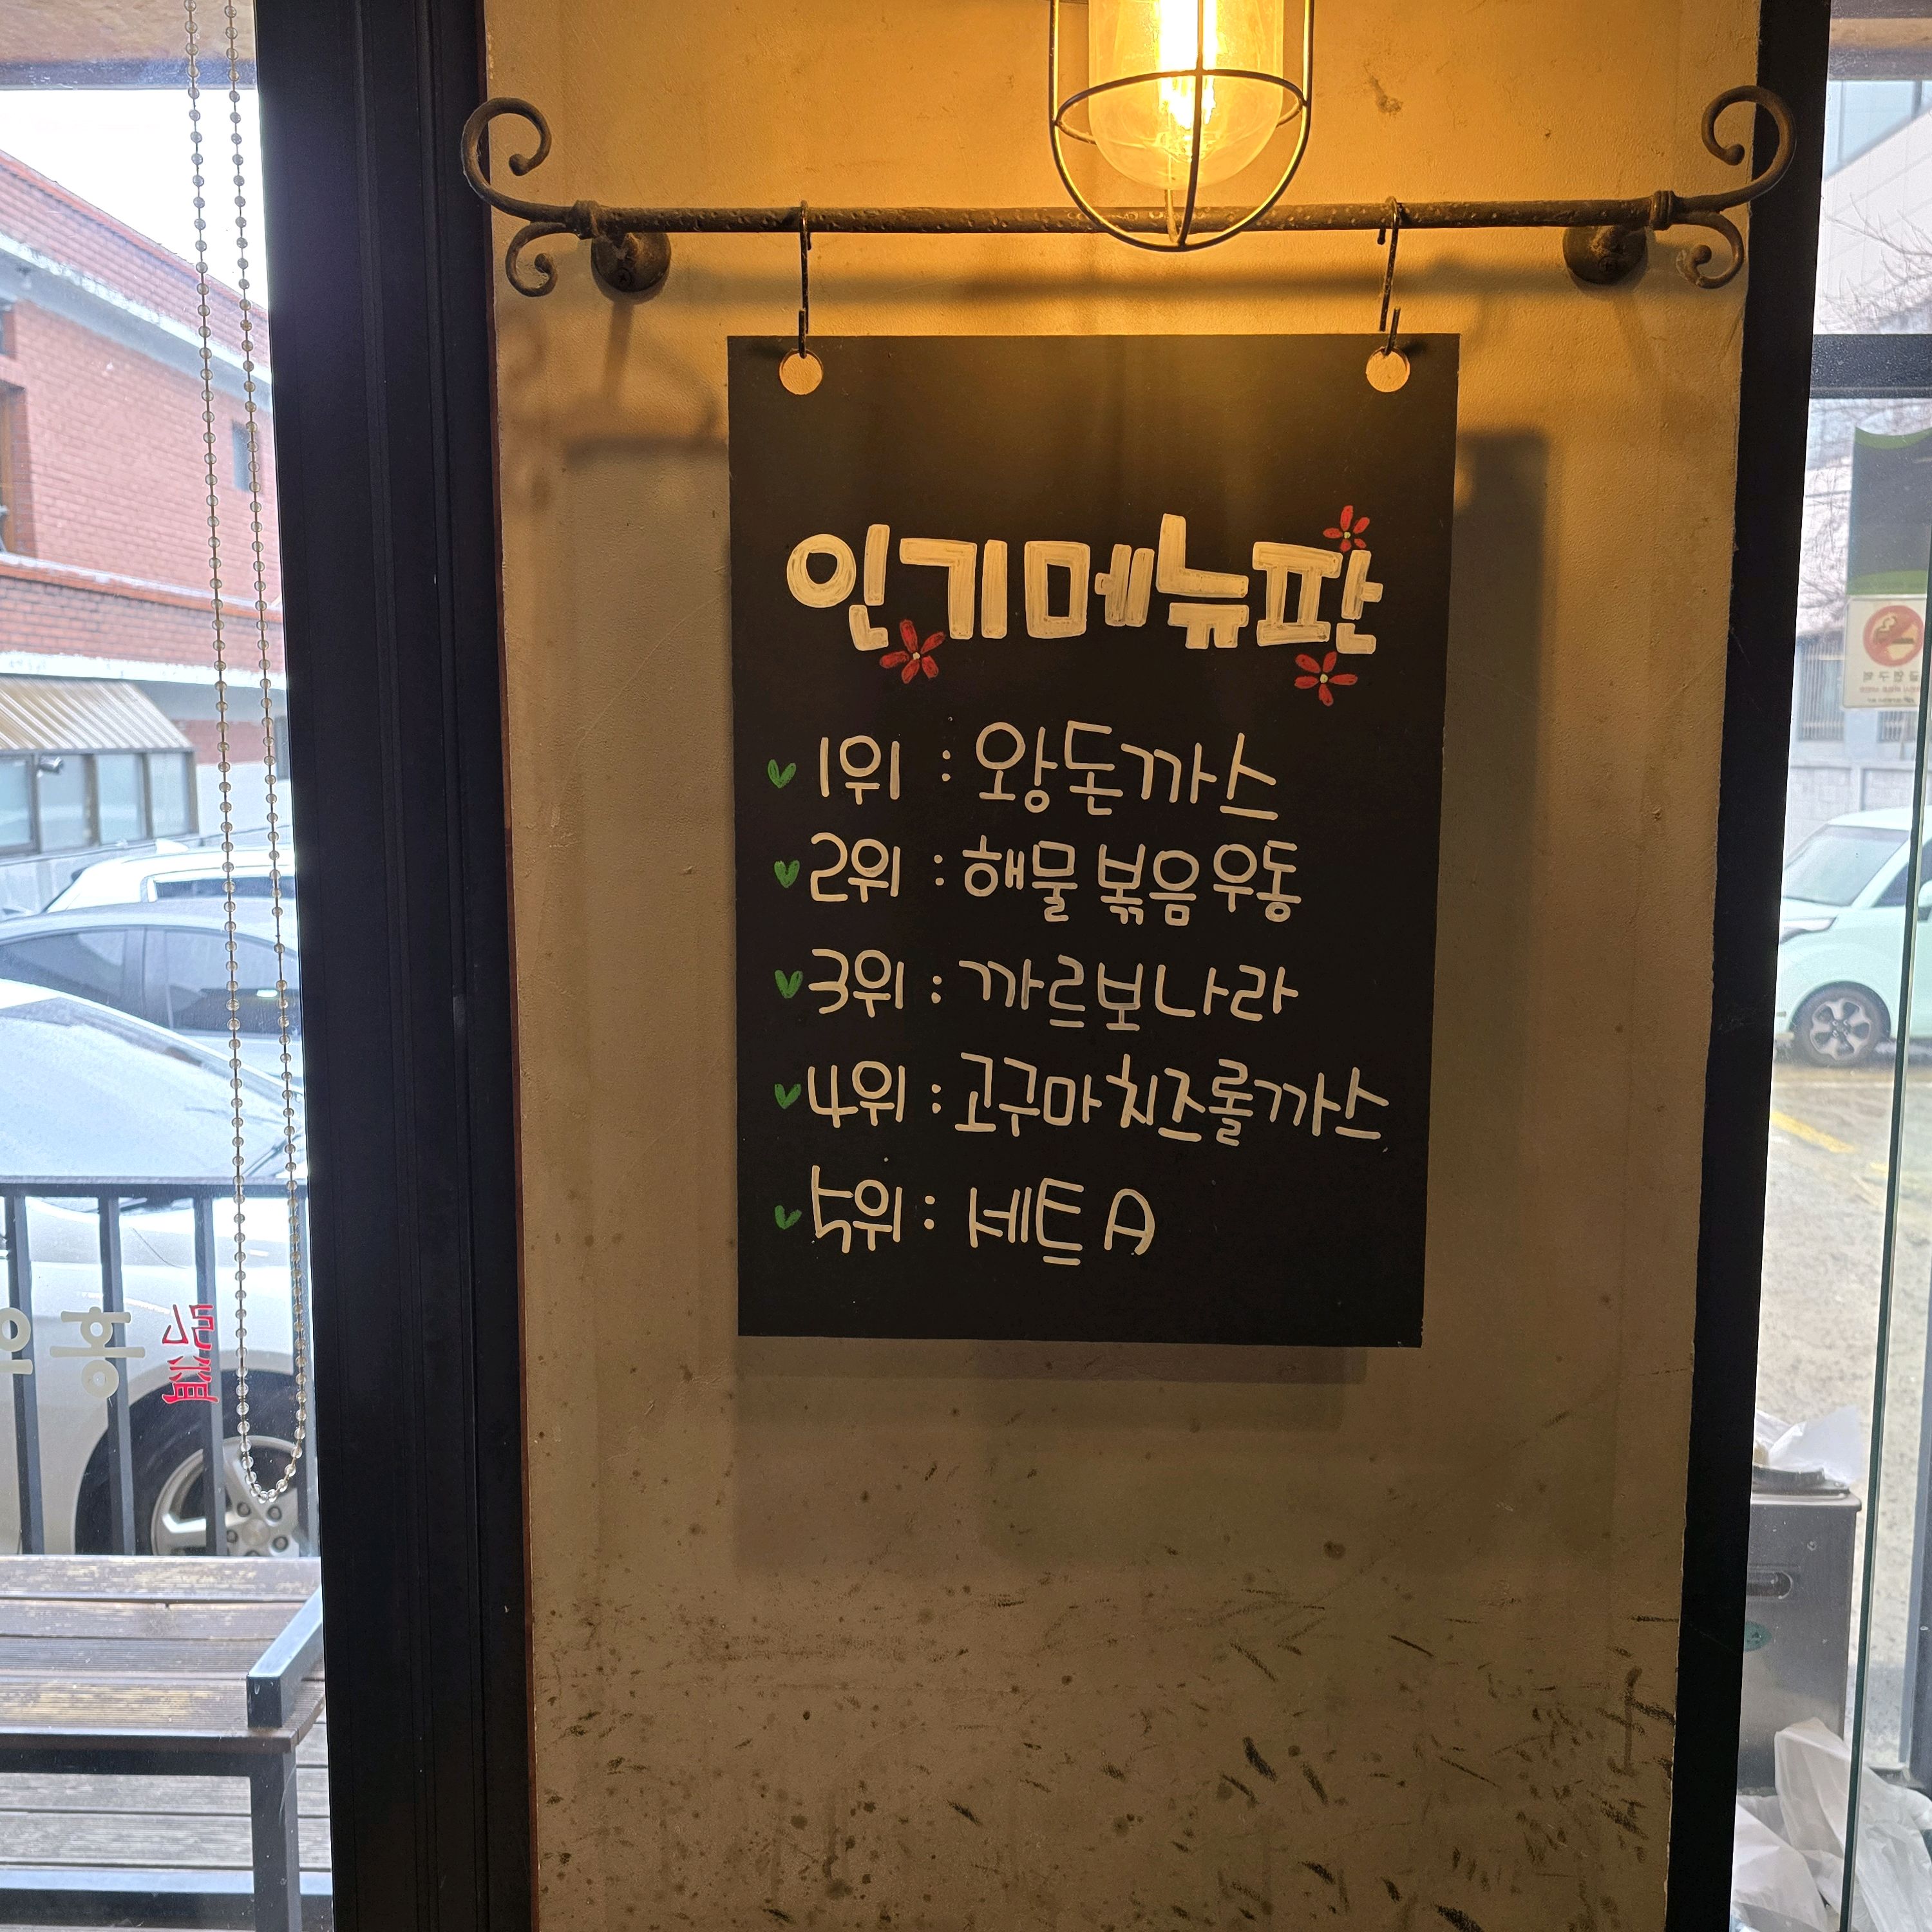 인기메뉴판
1위 : 왕돈까스
2위 : 해물볶음우동
3위 : 까르보나라
4위 : 고구마치즈롤까스
5위 : 세트 A